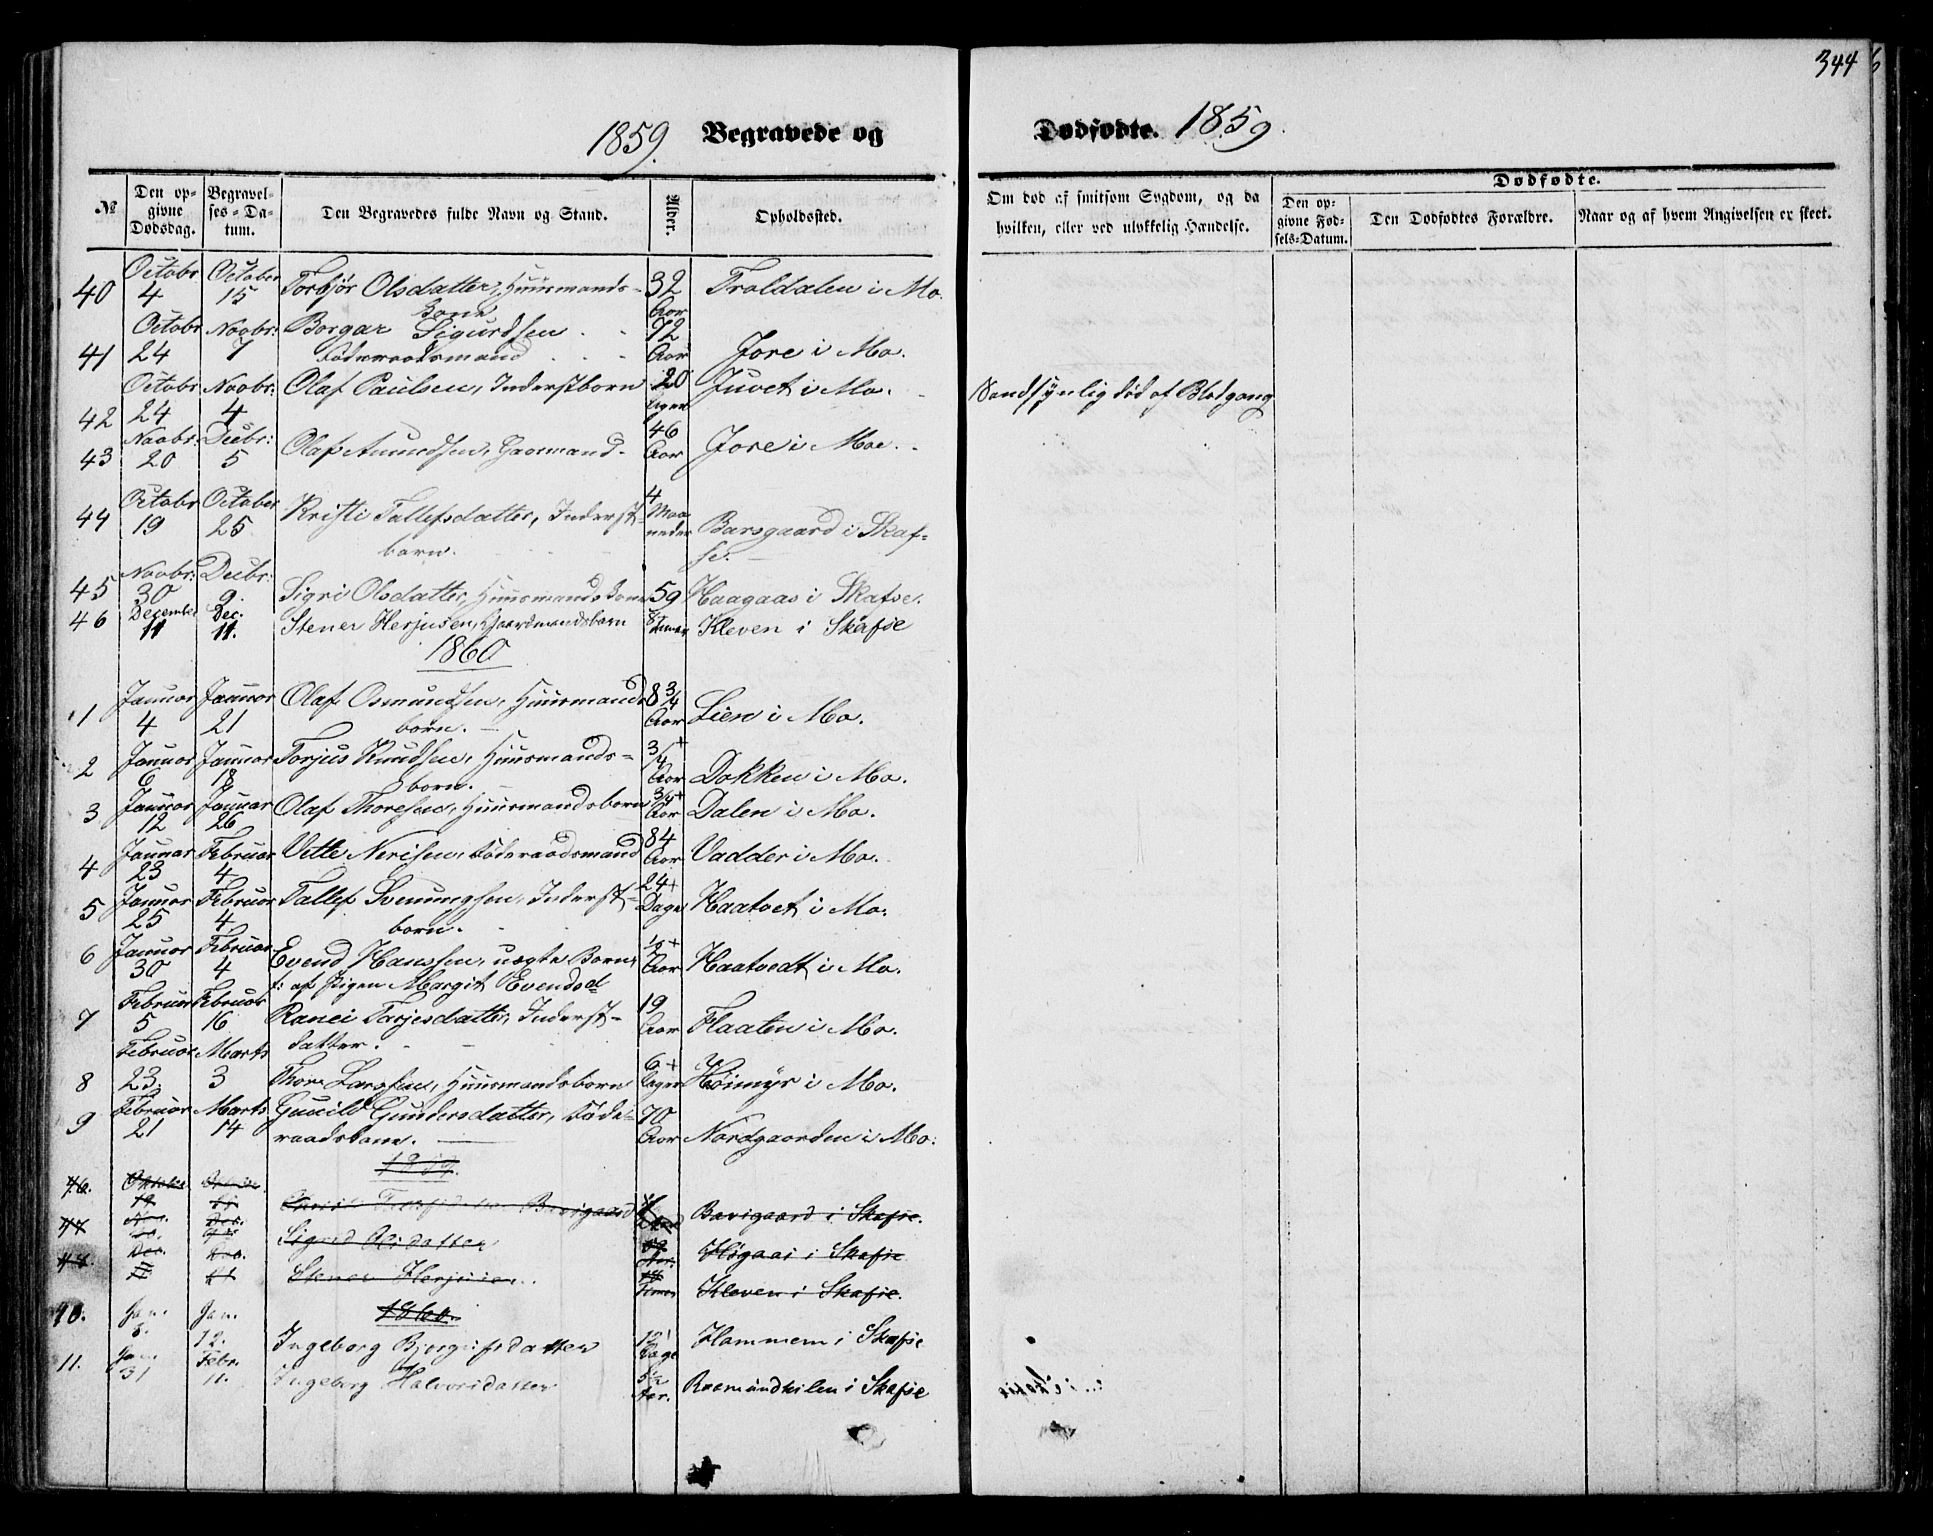 344
1859. Begravede og
Dødfødte. 1859.
№ Den op-givne Dødsdag. Begravel-ses-Da-tum. Den Begravedes fulde Navn og Stand. Alder. Opholdssted.
Om død af smitsom Sygdom, og da hvilken, eller ved ulykkelig Hændelse.
Dødfødte.
Den op-givne Fød-sels-Datum. Den Dødfødtes Forældre. Naar og af hvem Angivelsen er skeet.
40 Octobr 4 October 15 Torbjør Olsdatter, Huusmands- Kone 32 Aar Troldalen i Mo.
41 Octobr 24 Novbr: 7 Borgar Sigurdsen Föderaadsmand 72 Aar Jore i Mo.
42 Octobr 24 Novbr: 4 Olaf Paulsen, Inderstbarn 20 Uger Juvet i Mo. Sandsynlig död af Blodgang
43 Novbr: 20 Decbr: 5 Olaf Aumundsen, Gaarmand. 46 Aar Jore i Moe.
44 Octobr 19 October 25 Kristi Tallefsdatter, Inderst- barn. 4 Maa neder Barsgaard i Skaf- se.
45 Novbr: 30 Decbr: 9. Sigri Olsdatter, Huusmands Kone 59 Haagaas i Skafse.
46 December 11 Dec. 11. Stener Herjusen, Gaardmandsbarn 8 Timer Kleven i Skafse
1860
1 Januar 4 Januar 21 Olaf Osmundsen, Huusmands barn. 8 3/4 Aar Lien i Mo.
2 Januar 6 Januar 18 Torjus Knudsen, Huusmands- barn. 3/4 + Aar Dokken i Mo.
3 Januar 12 Januar 26 Olaf Thoresen, Huusmandsbarn 3/4 + Aar Dalen i Mo.
4 Januar 23 Februar 4 Vetle Nerisen, Föderaadsmand 84 Aar Vadder i Mo.
5 Januar 25 Februar 4 Tallef Svenungsen, Inderst- barn. 24 + Dage Haatvet i Mo.
6 Januar 30 Februar 4 Evend Hanssen, uægte Barn, f: af Pigen Margit Evendsd + Aar Haatvedt i Mo.
7 Februar 5 Februar 16 Ranei Tarjesdatter, Inderst- datter. 19 Aar Flaaten i Mo.
8 Februar 23. Marts 3 Thore Larssen, Huusmandsbarn 6 + Uger Höimyr i Mo.
9 Februar 21 Marts 14 Gunild Gundersdatter, Föde- raadskone. 70 Aar Nordgaarden i Mo.
1859.
46. Oktober 19 Barsgaard 4 Barsgaard i Skafse.
47 Nov. 30 Dec. Sigrid Olsdatter 59 Aar. Högaas i Skafse
48. Dec. 11 Dec. 11 Stener Herjusen. Timer Kleven i Skafse.
1860.
10. Jan. 5. Jan. 12. Ingeborg Bjorgulfsdatter 12 Dage Hammern i Skafse
11. Jan. 31 Febr. 11. Ingeborg Halvorsdatter 5 1/2 Aar. Rosmundkilen i Skafse